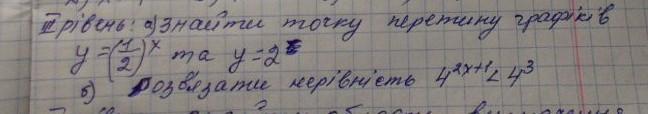 III рівень: а) знайти точку перетину графіків
y = (1/2)^x та y = 2
б) Розв'язати нерівність 4^{2x+1} < 4^3